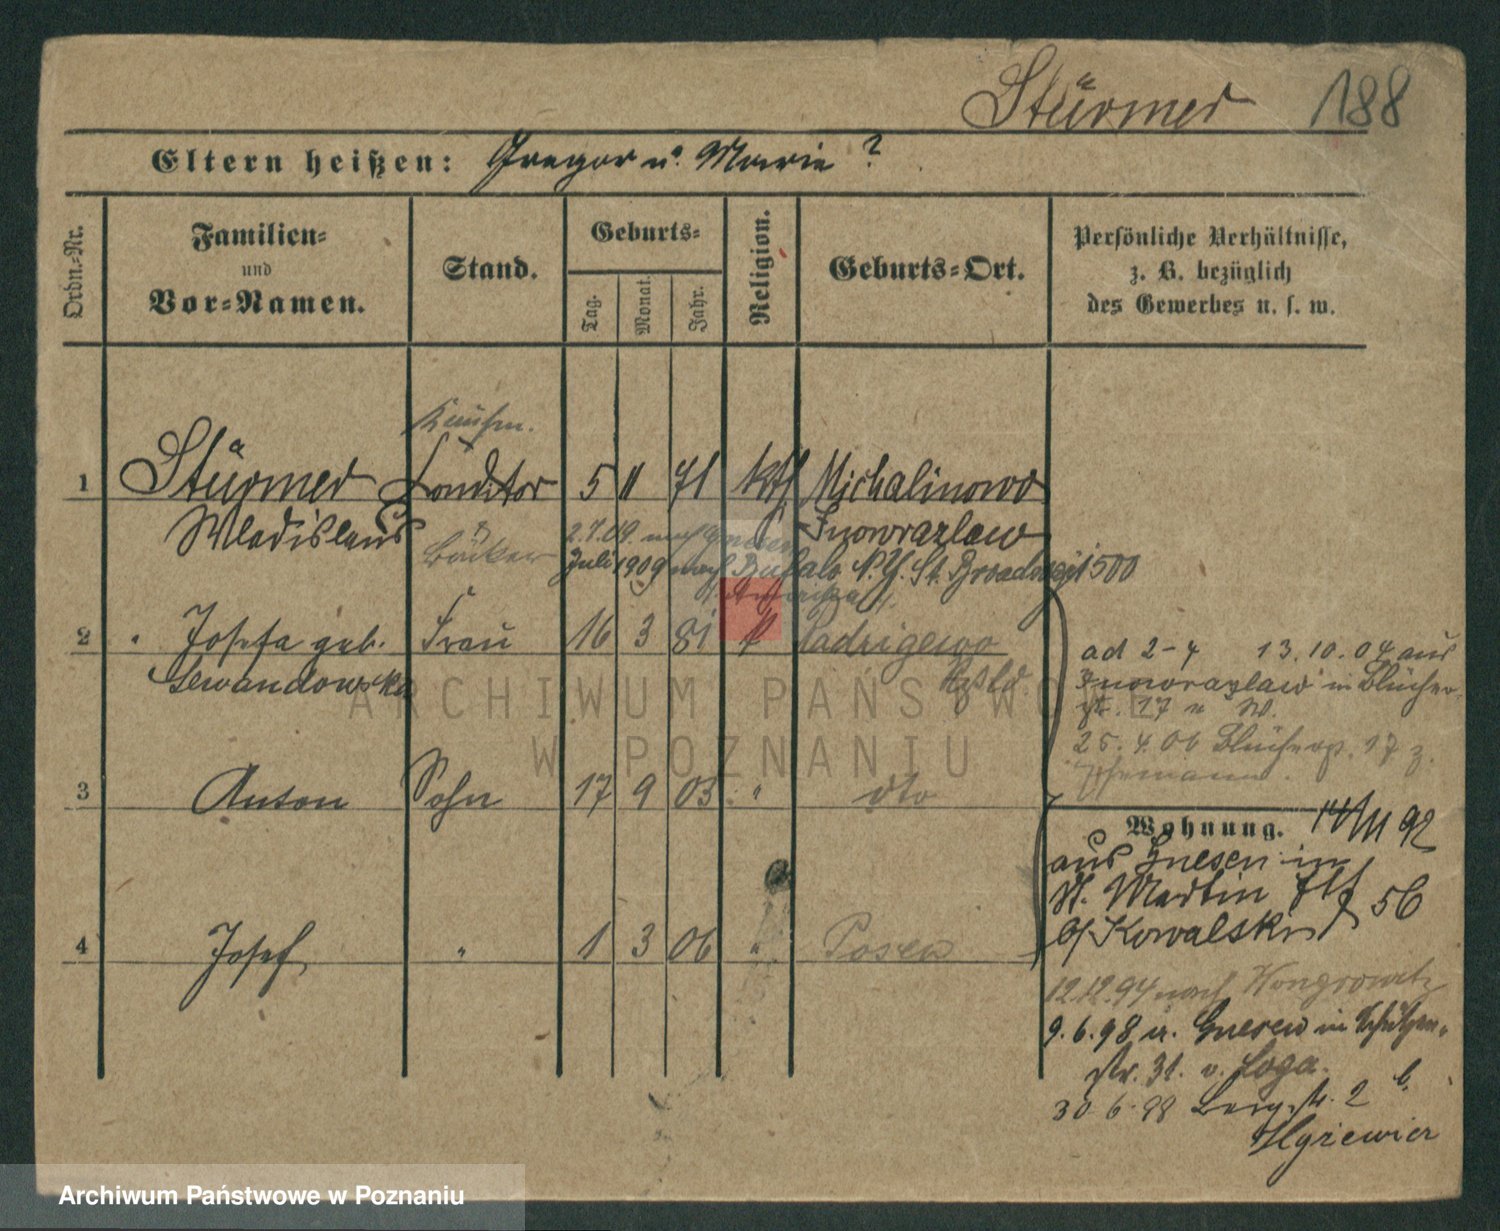 Stürmer 188
Eltern heißen: Gregor u. Marie ?
Ordn.-Nr.
Familien-
und
Vor-Namen.
Stand.
Geburts-
Tag.
Monat.
Jahr.
Religion.
Geburts-Ort.
Persönliche Verhältnisse,
z. B. bezüglich
des Gewerbes u. s. w.
Kaufm.
1 Stürmer Conditor 5 11 71 kth Michalinowo
Wladislaus Bäcker Inowrazlaw
2.7.09. nach Gnesen
Juli 1909 nach Bufalo N.Y. St. Broadway 1500
Amerika
2 " Josefa geb. Frau 16 3 81 k
Lewandowska
ad 2-4 13.10.04 aus
Inowrazlaw in Blücher-
str. 17 W.
25.4.06 Blücherstr. 17 z.
3 Anton Sohn 17 9 03 " dto
4 Josef " 1 3 06 " Posen
Wohnung. 14/11 92
aus Gnesen in
St. Martin 56
b/ Kowalski
12.12.94 nach Wongrowitz
9.6.98 a. Gnesen in Schützen-
str. 31. v. Loga.
30.6.98 Berg-str. 2 b.
ARCHIWUM PAŃSTWOWE
W POZNANIU
Archiwum Państwowe w Poznaniu